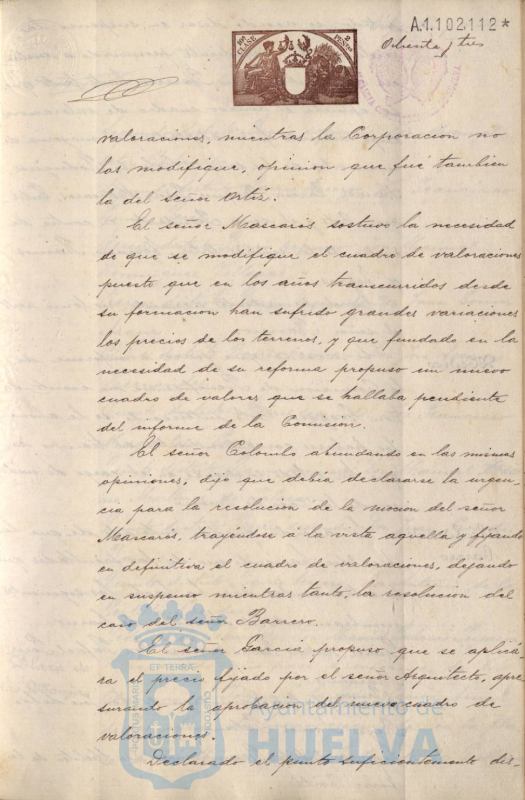 A.1.102.112*
10ª CLASE
2 PESETAS
Ochenta y tres
valoraciones, mientras la Corporacion no
las modifique, opinion que fué tambien
la del Señor Ortiz.
El señor Mascarós sostuvo la necesidad
de que se modifique el cuadro de valoraciones
puesto que en los años transcurridos desde
su formacion han sufrido grandes variaciones
los precios de los terrenos, y que fundado en la
necesidad de su reforma propuso un nuevo
cuadro de valores que se hallaba pendiente
del informe de la Comisión.
El señor Colombo abundando en las mismas
opiniones, dijo que debia declararse la urgen-
cia para la resolucion de la mocion del señor
Mascarós, trayéndose á la vista aquella y fijando
en definitiva el cuadro de valoraciones, dejando
en suspenso mientras tanto, la resolucion del
caso del señor Barrero.
El señor Garcia propuso que se aplicá-
ra el precio fijado por el señor Arquitecto, apre
surando la aprobacion del nuevo cuadro de
valoraciones.
Declarado el punto suficientemente dis-
PORTUS MARIS ET TERRAE CUSTODIA
Ayuntamiento de
HUELVA